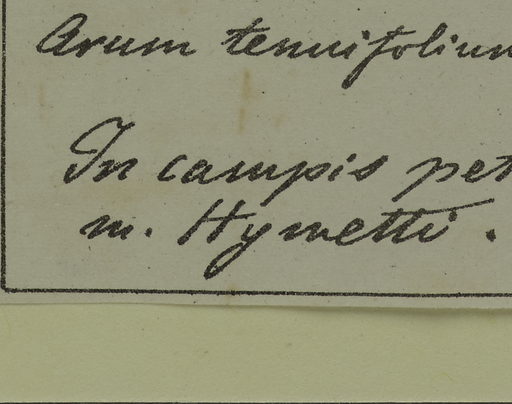 Arum tenuifolium
In campis pet
m. Hymetti.